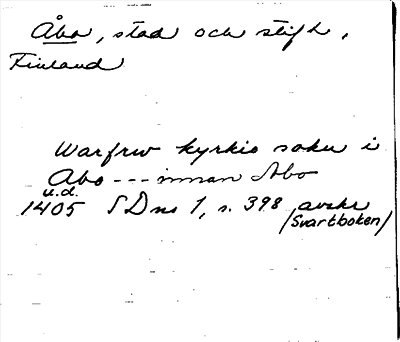 Åbo, stad och stift,
Finland
Warfrw kyrkio sokn i
Abo --- innan Abo
u.d.
1405 SDns 1, s. 398, avskr
(Svartboken)